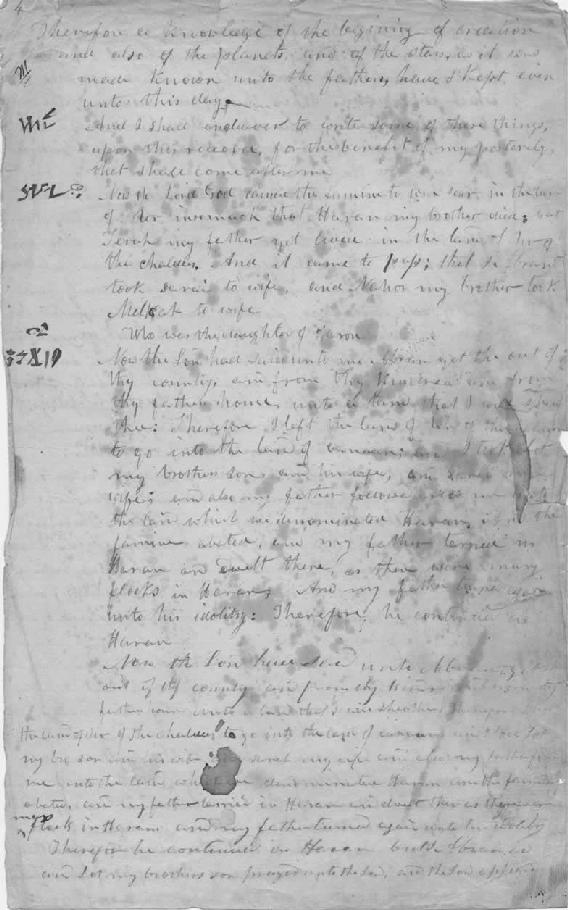 4
Therefore a knowledge of the begining of creation
and also of the planets, and of the stars, as it was
made known unto the fathers, have I kept even
unto this day
And I shall endeaver to write some of these things,
upon this record, for the benefit of my posterity,
that shall come after me
Now the Lord God caused the famine to wax sear, in the land
of Ur insomuch that Haran my brother died; but
Terah my father yet lived in the land of Ur of
the chaldees. And it came to pass; that I Abram
took Sarai to wife, and Nahor my brother took
Milcah to wife
Who was the daughter of Haran
Now the Lord had said unto me Abram get the out of
thy country, and from thy kindred and from
thy fathers house, unto a land that I will shew
thee: Therefore I left the land of Ur of the
to go into the land of canaan; and I took Lot
my brothers son, and his wife, and Sarai
wife; and also my father followed me unto
the land which we denominated Haran, and the
famine abated, and my father tarried in
Haran and dwelt there, as there were many
flocks in Haran; And my father turned again
unto his idolitry: Therefore he continued in
Haran
Now the Lord had said unto Abram get
out of thy country and from thy kindred and from thy
fathers house unto a land that I will shew thee
the land of Ur of the chaldees to go into the land of canaan and I took Lot
my bro son and his wife and Sarai my wife and also my father followed
me unto the land which we denominated Haran and the famine
abated, and my father tarried in Haran and dwelt there as there were
many
flocks in Haran and my father turned again unto his idolitry
Therefore he continued in Haran but I Abram and
and Lot my brothers son prayed unto the Lord, and the Lord appeared